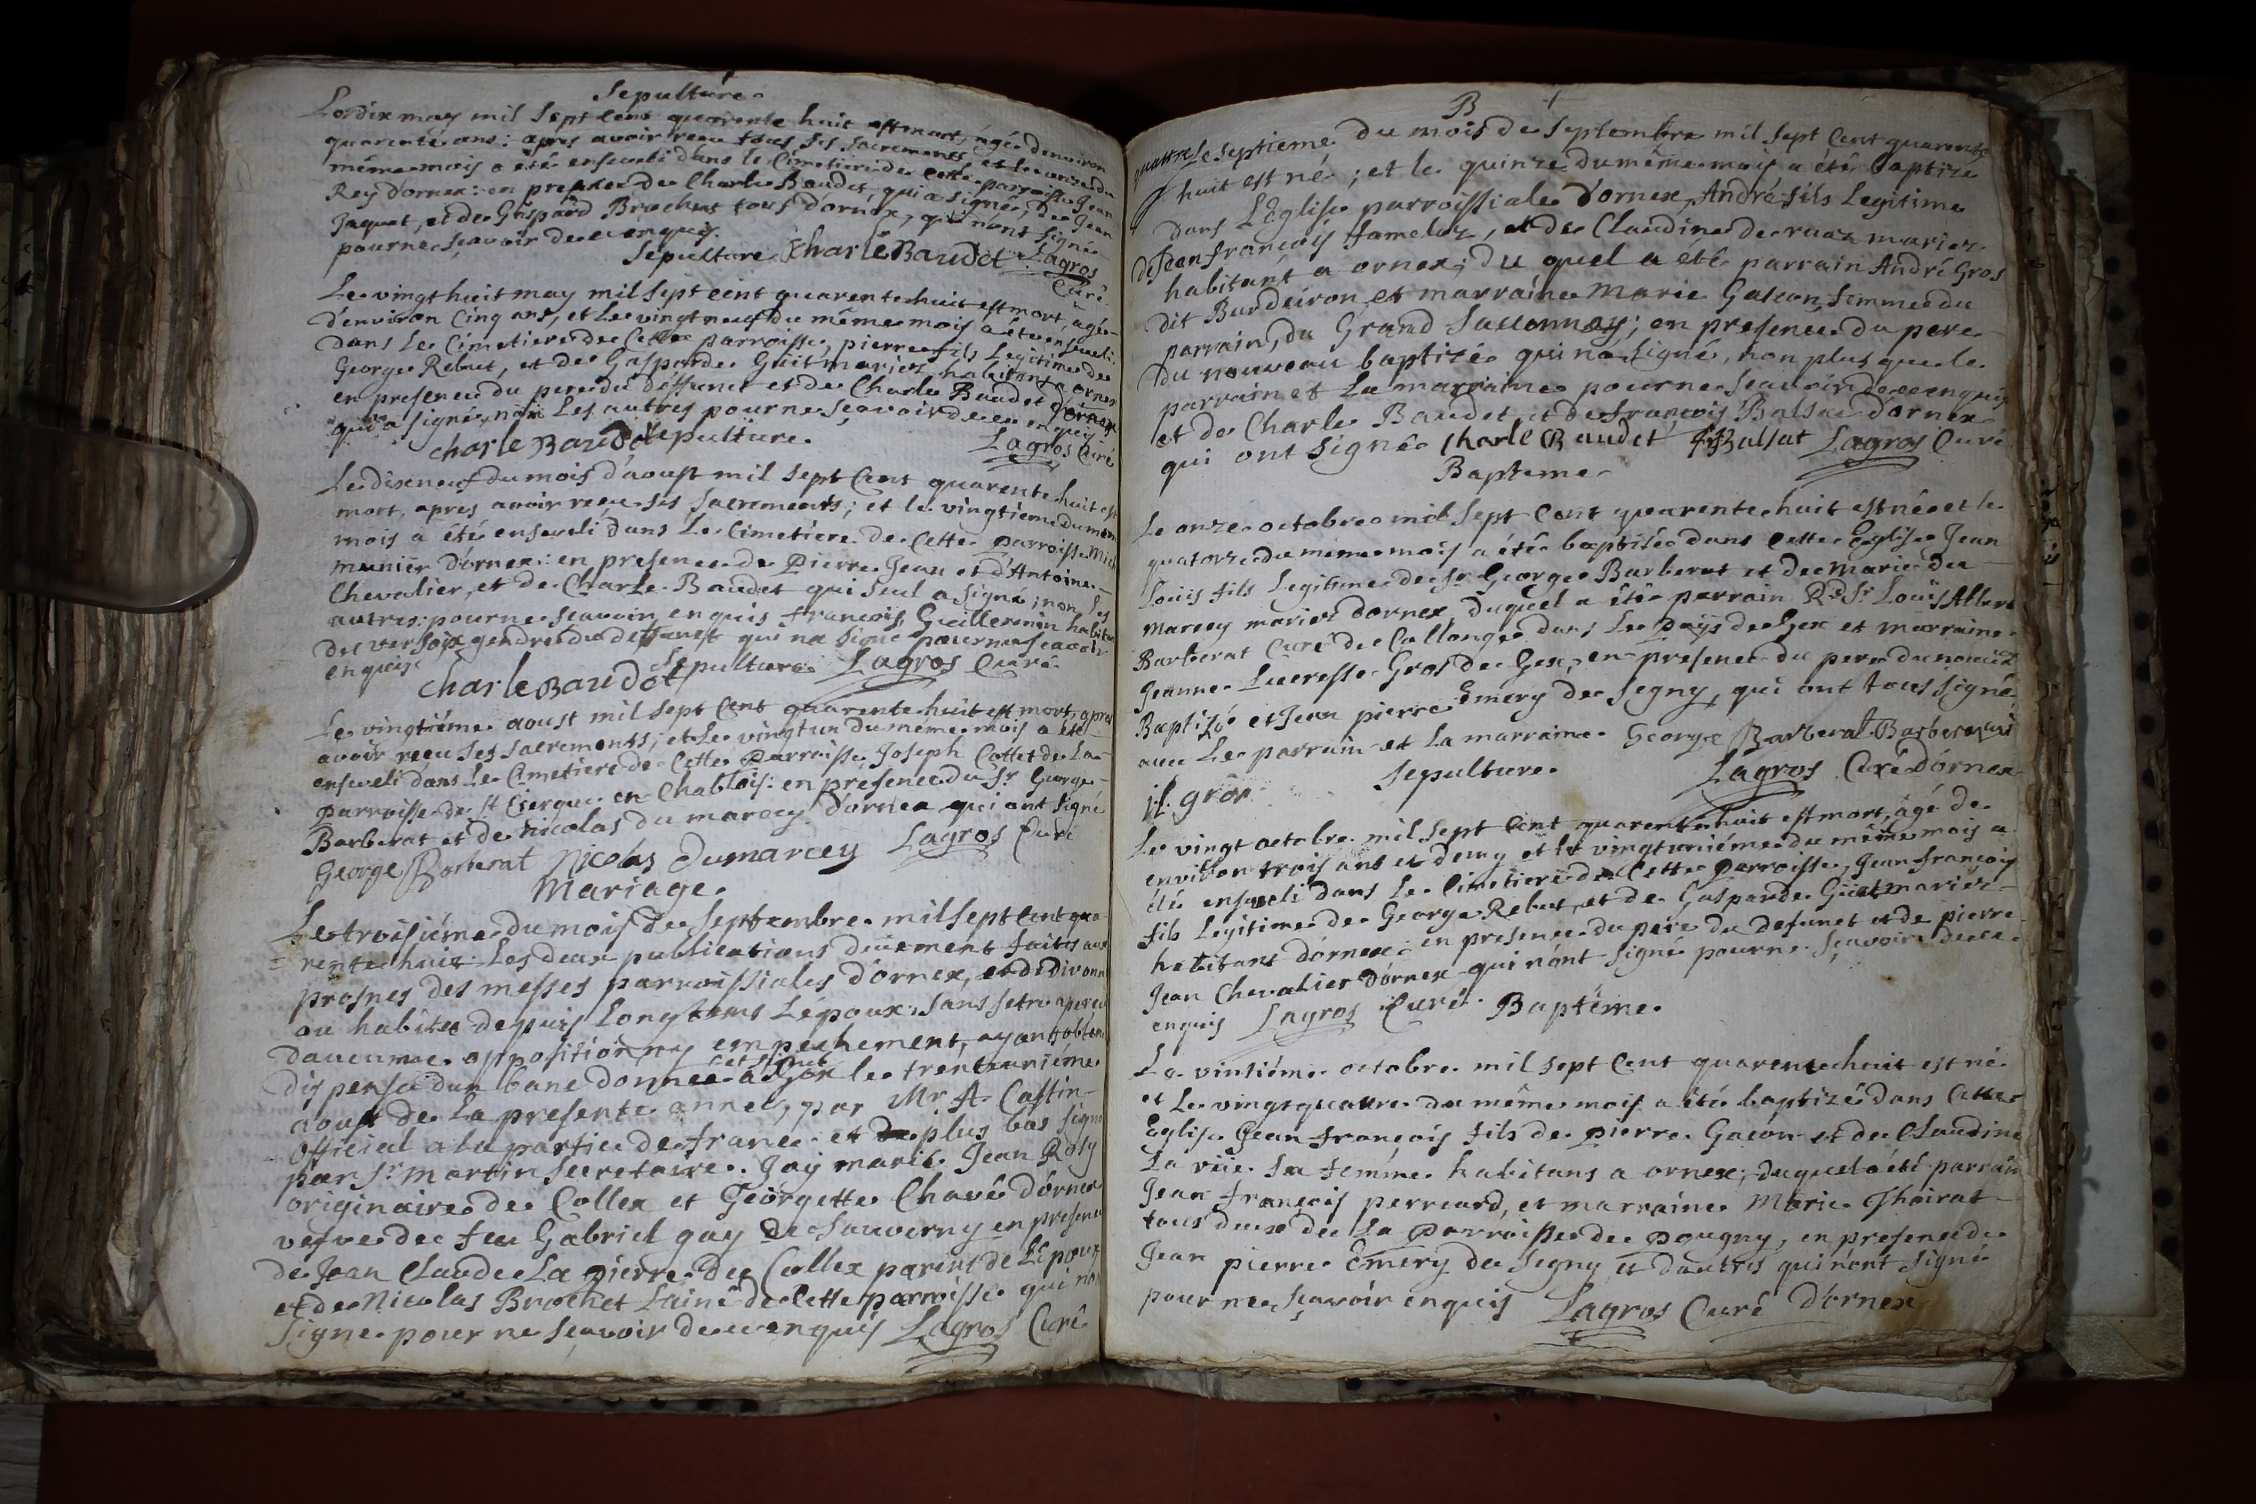 Sepulture
Le dix may mil sept cens quarente huit est mort, agé denviron
quarente ans : apres avoir receu tous ses sacrements, et le onze du
même mois a été enseveli dans le Cimetiere de cette parroisse Jean
Rey d'ornex : en presence de Charle Baudet qui a signé, de Jean
Jaquet, et de Gaspard Brochet tous d'ornex, qui n'ont signé
pour ne sçavoir de ce enquis.
Charle Baudet Lagros
Curé
Sepulture
Le vingt huit may mil sept cent quarente huit est mort, agé
d'environ Cinq ans, et le vingt neuf du même mois a été enseveli
dans le Cimetiere de Cette parroisse, pierre fils Legitime de
George Rebut, et de Gasparde Guit mariez habitans a ornex
en presence du pere du deffunct et de Charle Baudet d'ornex
qui a signé, non Les autres pour ne sçavoir de ce enquis
charle Baudet Lagros Curé
Sepulture.
Le dixneuf du mois d'aoust mil sept Cent quarente huit est
mort, apres avoir receu ses sacrements ; et le vingtième du même
mois a été enseveli dans Le Cimetiere de Cette parroisse
munier d'ornex : en presence de Pierre Jean et d'Antoine
Chevalier, et de Charle Baudet qui seul a signé ; non les
autres : pour ne scavoir enquis francois Guillermin
de versoix gendre du deffunct qui na signé pour ne scavoir
enquis
Charle Baudet Lagros Curé
Sepulture
Le vingtiéme aoust mil sept Cent quarente huit est mort, apres
avoir receu ses sacrements ; et le vingt un du même mois a été
enseveli dans le Cimetiere de Cette Parroisse Joseph Cottet de La
parroisse de St Cierque en Chablois : en presence du Sr George
Barberat et de nicolas du marcey d'ornex qui ont signé
George Barberat Nicolas Dumarcey Lagros Curé
Mariage.
Le troisiéme du mois de septembre mil sept Cent qua-
rente huit Les deux publications düement faites aux
prosnes des messes parroissiales d'ornex, et de divonne
ou habite depuis Longtems L'époux. sans setre aperçu
daucune opposition ny empechement, ayant obtenu
dispense dun banc donnée et signée a Gex le trenteuniéme
aoust de La presente année, par Mr. A. Castin
Official a la partie de france et plus bas signé
par Sr Martin secretaire. Jay marié Jean Roly
originaire de Collex et Georgette Chavê d'ornex
vefve de feu Gabriel gay de Sauverny en presence
de Jean Claude La pierre de Collex parint de L'Epoux
et de Nicolas Brochet Lainé de Cette parroisse qui n'ont
signe pour ne sçavoir de ce enquis Lagros Curé
B
Le septieme du mois de septembre mil sept Cent quarente
huit est né ; et le quinze du même mois a été baptizé
dans L'Eglise parroissiale d'ornex, André fils Legitime
de Jean françois Hameluz, et de Claudine de ruaz mariez
habitant a ornex ; du quel a été parrain André Gros
dit Burdeiron, et marraine Marie Gascon, femme du
parrain, du Grand Sacconnay ; en presence du pere
du nouveau baptizé qui na signé, non plus que le
parrain et La marraine pour ne sçavoir de ce enquis
et de Charle Baudet, et de françois Balsac d'ornex
qui ont signé charle Baudet Balsat Lagros Curé
Bapteme
Le onze octobre mil sept Cent quarente huit est né et le
quatorze du même mois a été baptisé dans Cette Eglise Jean
Loüis fils Legitime de Sr George Barberat et de Marie du
Marcey mariez d'ornex duquel a été parrain Rd Sr Loüis Albert
Barberat Curé de Collonge dans Le Païs de Gex et marraine
Jeanne Lucresse Gros de Gex, en presence du pere du nouveau
Baptizé et Jean pierre Emery de Segny, qui ont tous signé
avec Le parrain et La marraine. George Barberat Barberat curé
j:l: gros Lagros Curé D'ornex
Sepulture
Le vingt octobre mil sept Cent quarente huit est mort, âgé de
environ trois ans et demy et le vingtuniéme du même mois a
été enseveli dans Le Cimetiere de Cette Parroisse, Jean françois
fils Legitime de George Rebut, et de Gasparde Guit mariez
habitans d'ornex : en presence du pere du defunct et de pierre
Jean Chevalier d'ornex qui n'ont signé pour ne sçavoir de ce
enquis Lagros Curé
Baptême.
Le vintiéme octobre mil sept Cent quarente huit est né
et Le vingtquatre du même mois a été baptizé dans Cette
Eglise Jean françois fils de pierre Gacon et de Claudine
La viie sa femme habitans a ornex ; duquel a été parrain
Jean françois perreard, et marraine Marie Thoirat
tous deux de La parroisse de pougny, en presence de
Jean pierre Emery de Segny et dautres qui n'ont signé
pour ne sçavoir enquis Lagros Curé D'ornex